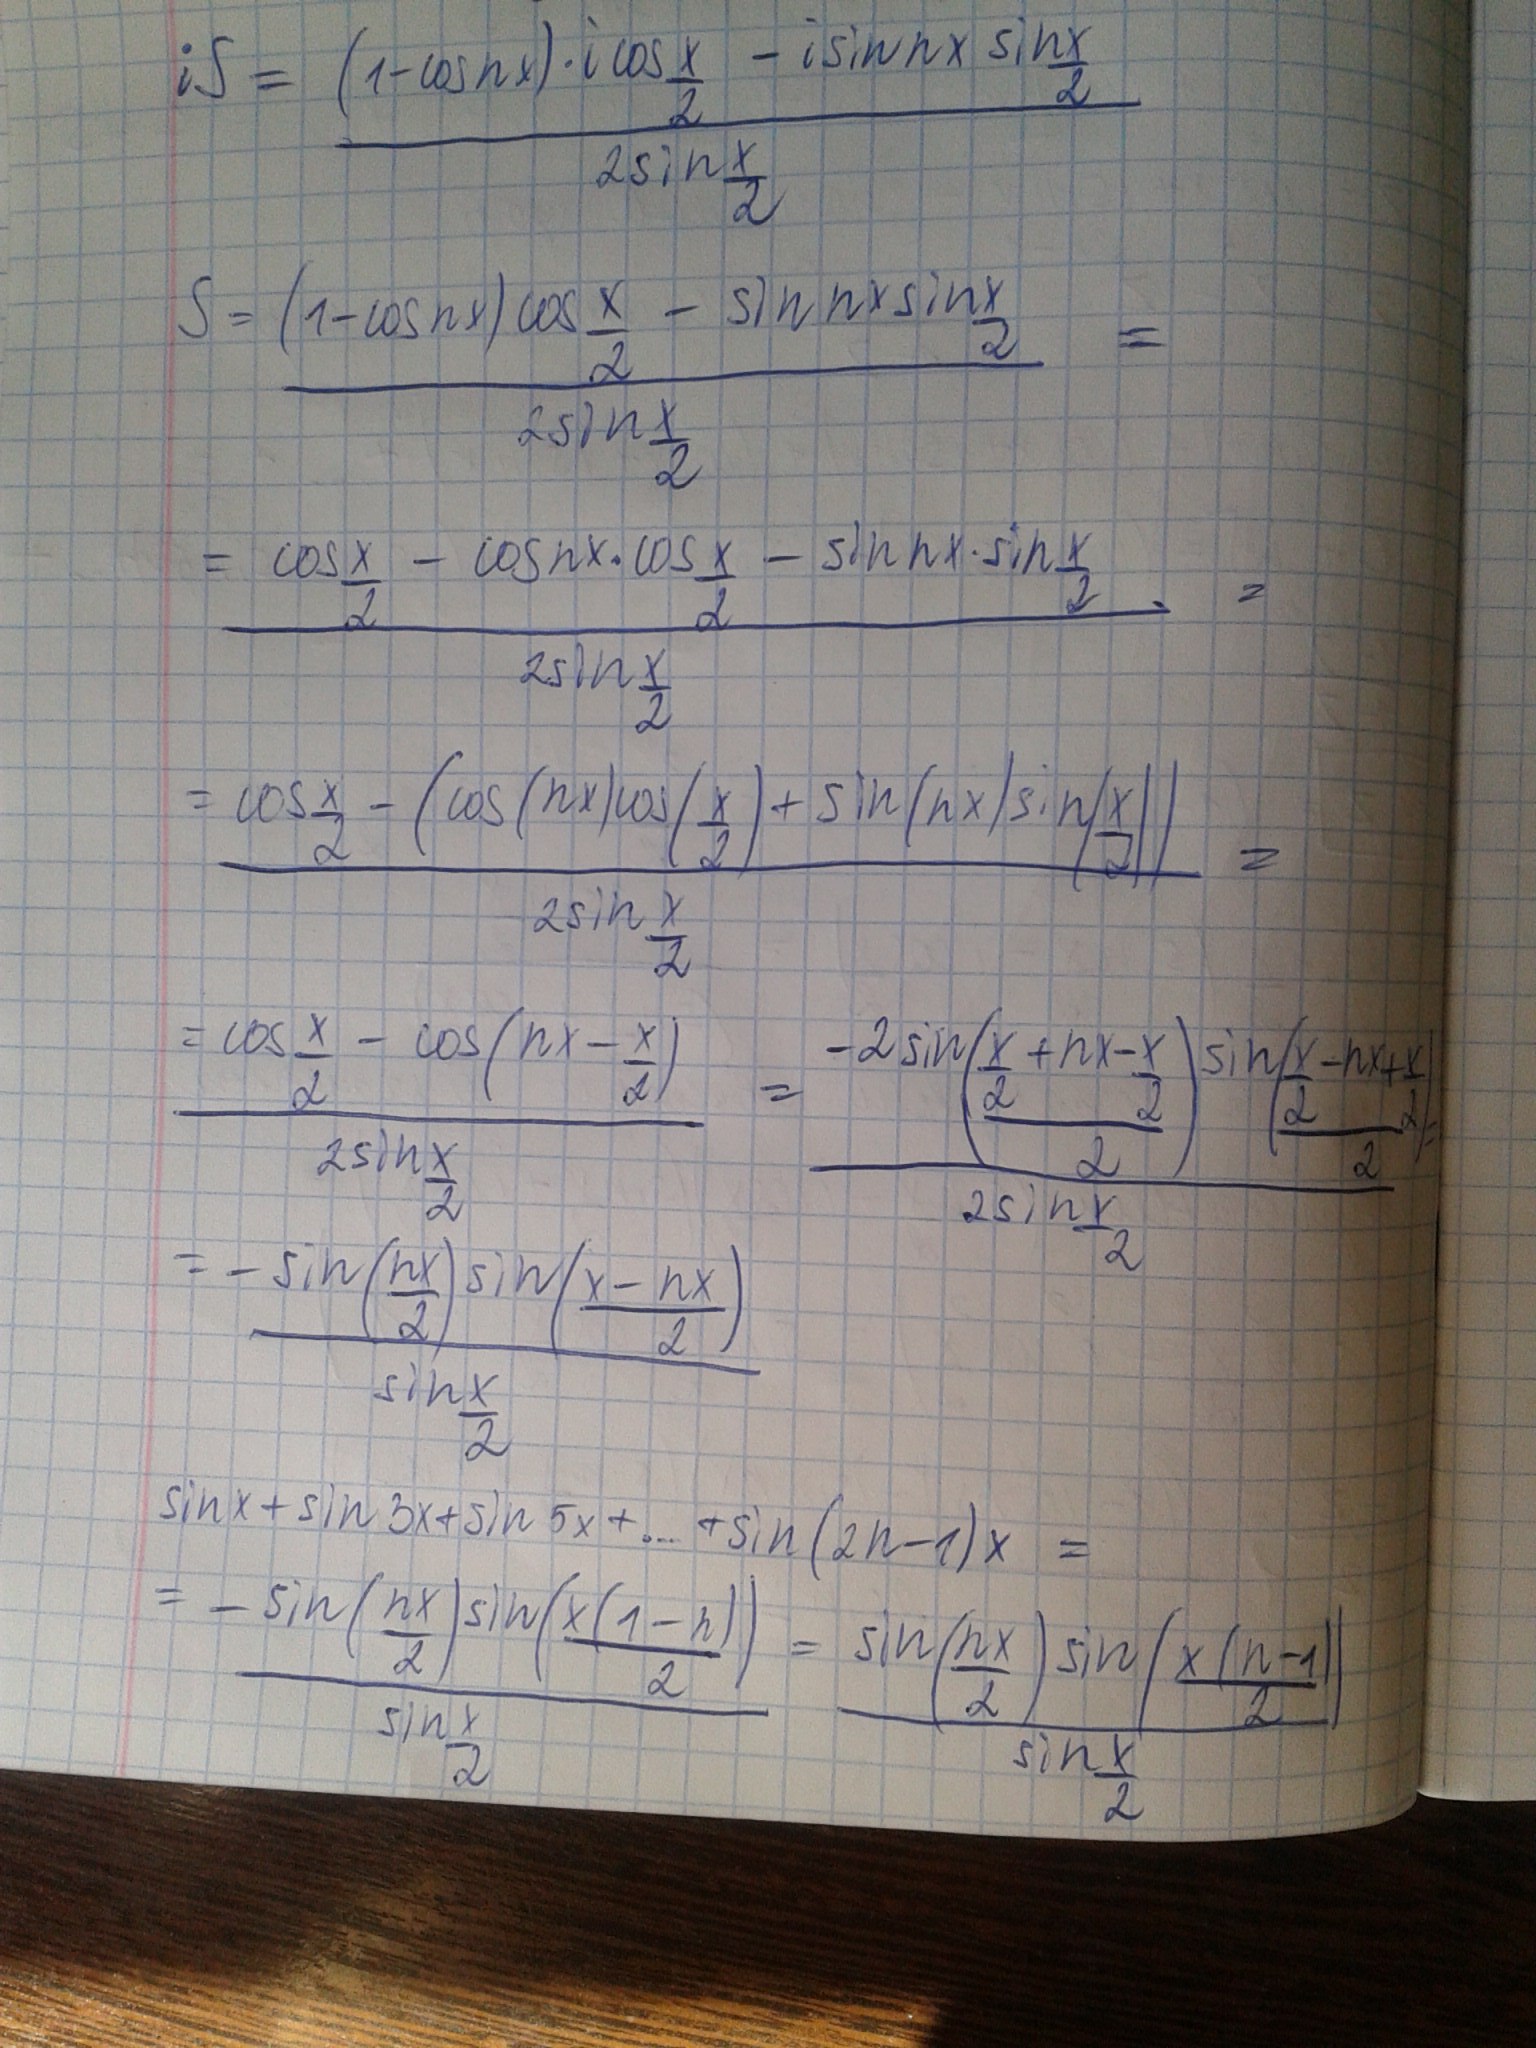 iS = ((1-cos nx)·i cos x/2 - i sin nx sin x/2) / (2 sin x/2)
S = ((1-cos nx) cos x/2 - sin nx sin x/2) / (2 sin x/2) =
= (cos x/2 - cos nx·cos x/2 - sin nx·sin x/2) / (2 sin x/2) =
= (cos x/2 - (cos(nx)cos(x/2) + sin(nx)sin(x/2))) / (2 sin x/2) =
= (cos x/2 - cos(nx - x/2)) / (2 sin x/2) = (-2 sin((x/2 + nx - x/2)/2) sin((x/2 - nx + x/2)/2)) / (2 sin x/2) =
= (-sin(nx/2) sin((x - nx)/2)) / (sin x/2)
sin x + sin 3x + sin 5x + ... + sin(2n-1)x =
= (-sin(nx/2) sin(x(1-n)/2)) / (sin x/2) = (sin(nx/2) sin(x(n-1)/2)) / (sin x/2)